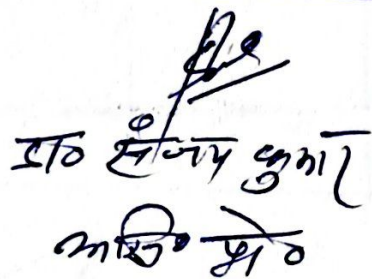 डा० संजय कुमार
असि० प्रो०